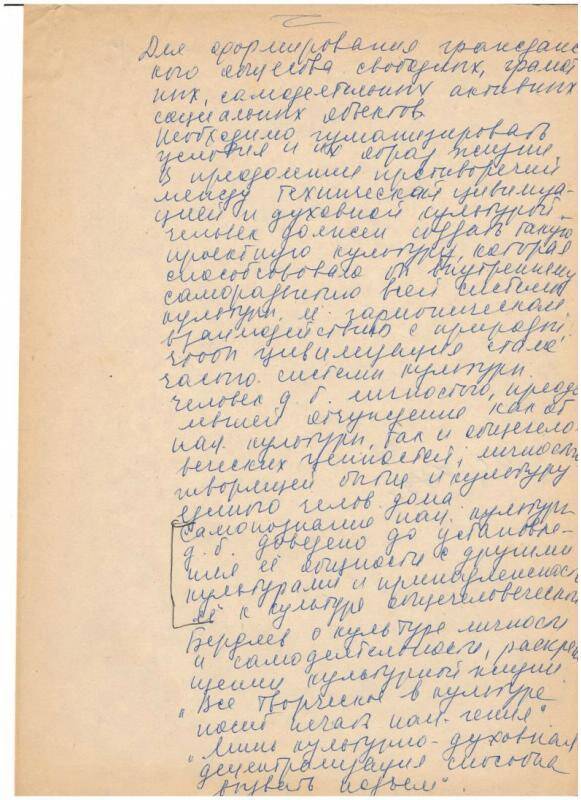 Для формирования гражданс
кого общества свободных, грамот
ных, самодеятельных активных
социальных объектов
необходимо гуманизировать
условия и их образ жизни.
В преодолении противоречий
между технической цивилиза
цией и духовной культурой
человек должен создать такую
проектную культуру, которая
способствовала бы внутреннему
саморазвитию всей системы
культуры, её гармоническому
взаимодействию с природой,
чтобы цивилизация стала
частью системы культуры.
Человек д.б. личностью, преодо
левшей отчуждение как от
нац. культуры, так и общечело
веческих ценностей, личность
творящей бытие и культуру
единого челов. дома
Самопознание нац. культуры
д.б. доведено до установле-
ния её общности с другими
культурами и принадлежность
её к культуре общечеловеческой
Бердяев о культуре личности
и самодеятельности, раскре
щении культурной жизни
"Все творческое в культуре
носит печать нац. гения"
"Лишь культурно-духовная
децентрализация способна
вызвать подъем".